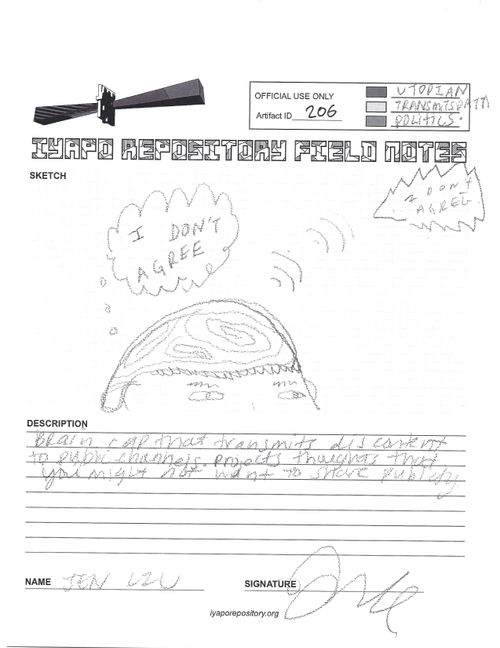 OFFICIAL USE ONLY
Artifact ID 206
UTOPIAN
POLITICS.
IYAPO REPOSITORY FIELD NOTES
SKETCH
I DON'T
AGREE
I DON'T
AGREE
DESCRIPTION
Brain cap that transmits discontent
to public channels. Projects thoughts that
you might not want to share publicly
NAME JEN LIU
SIGNATURE
iyaporepository.org